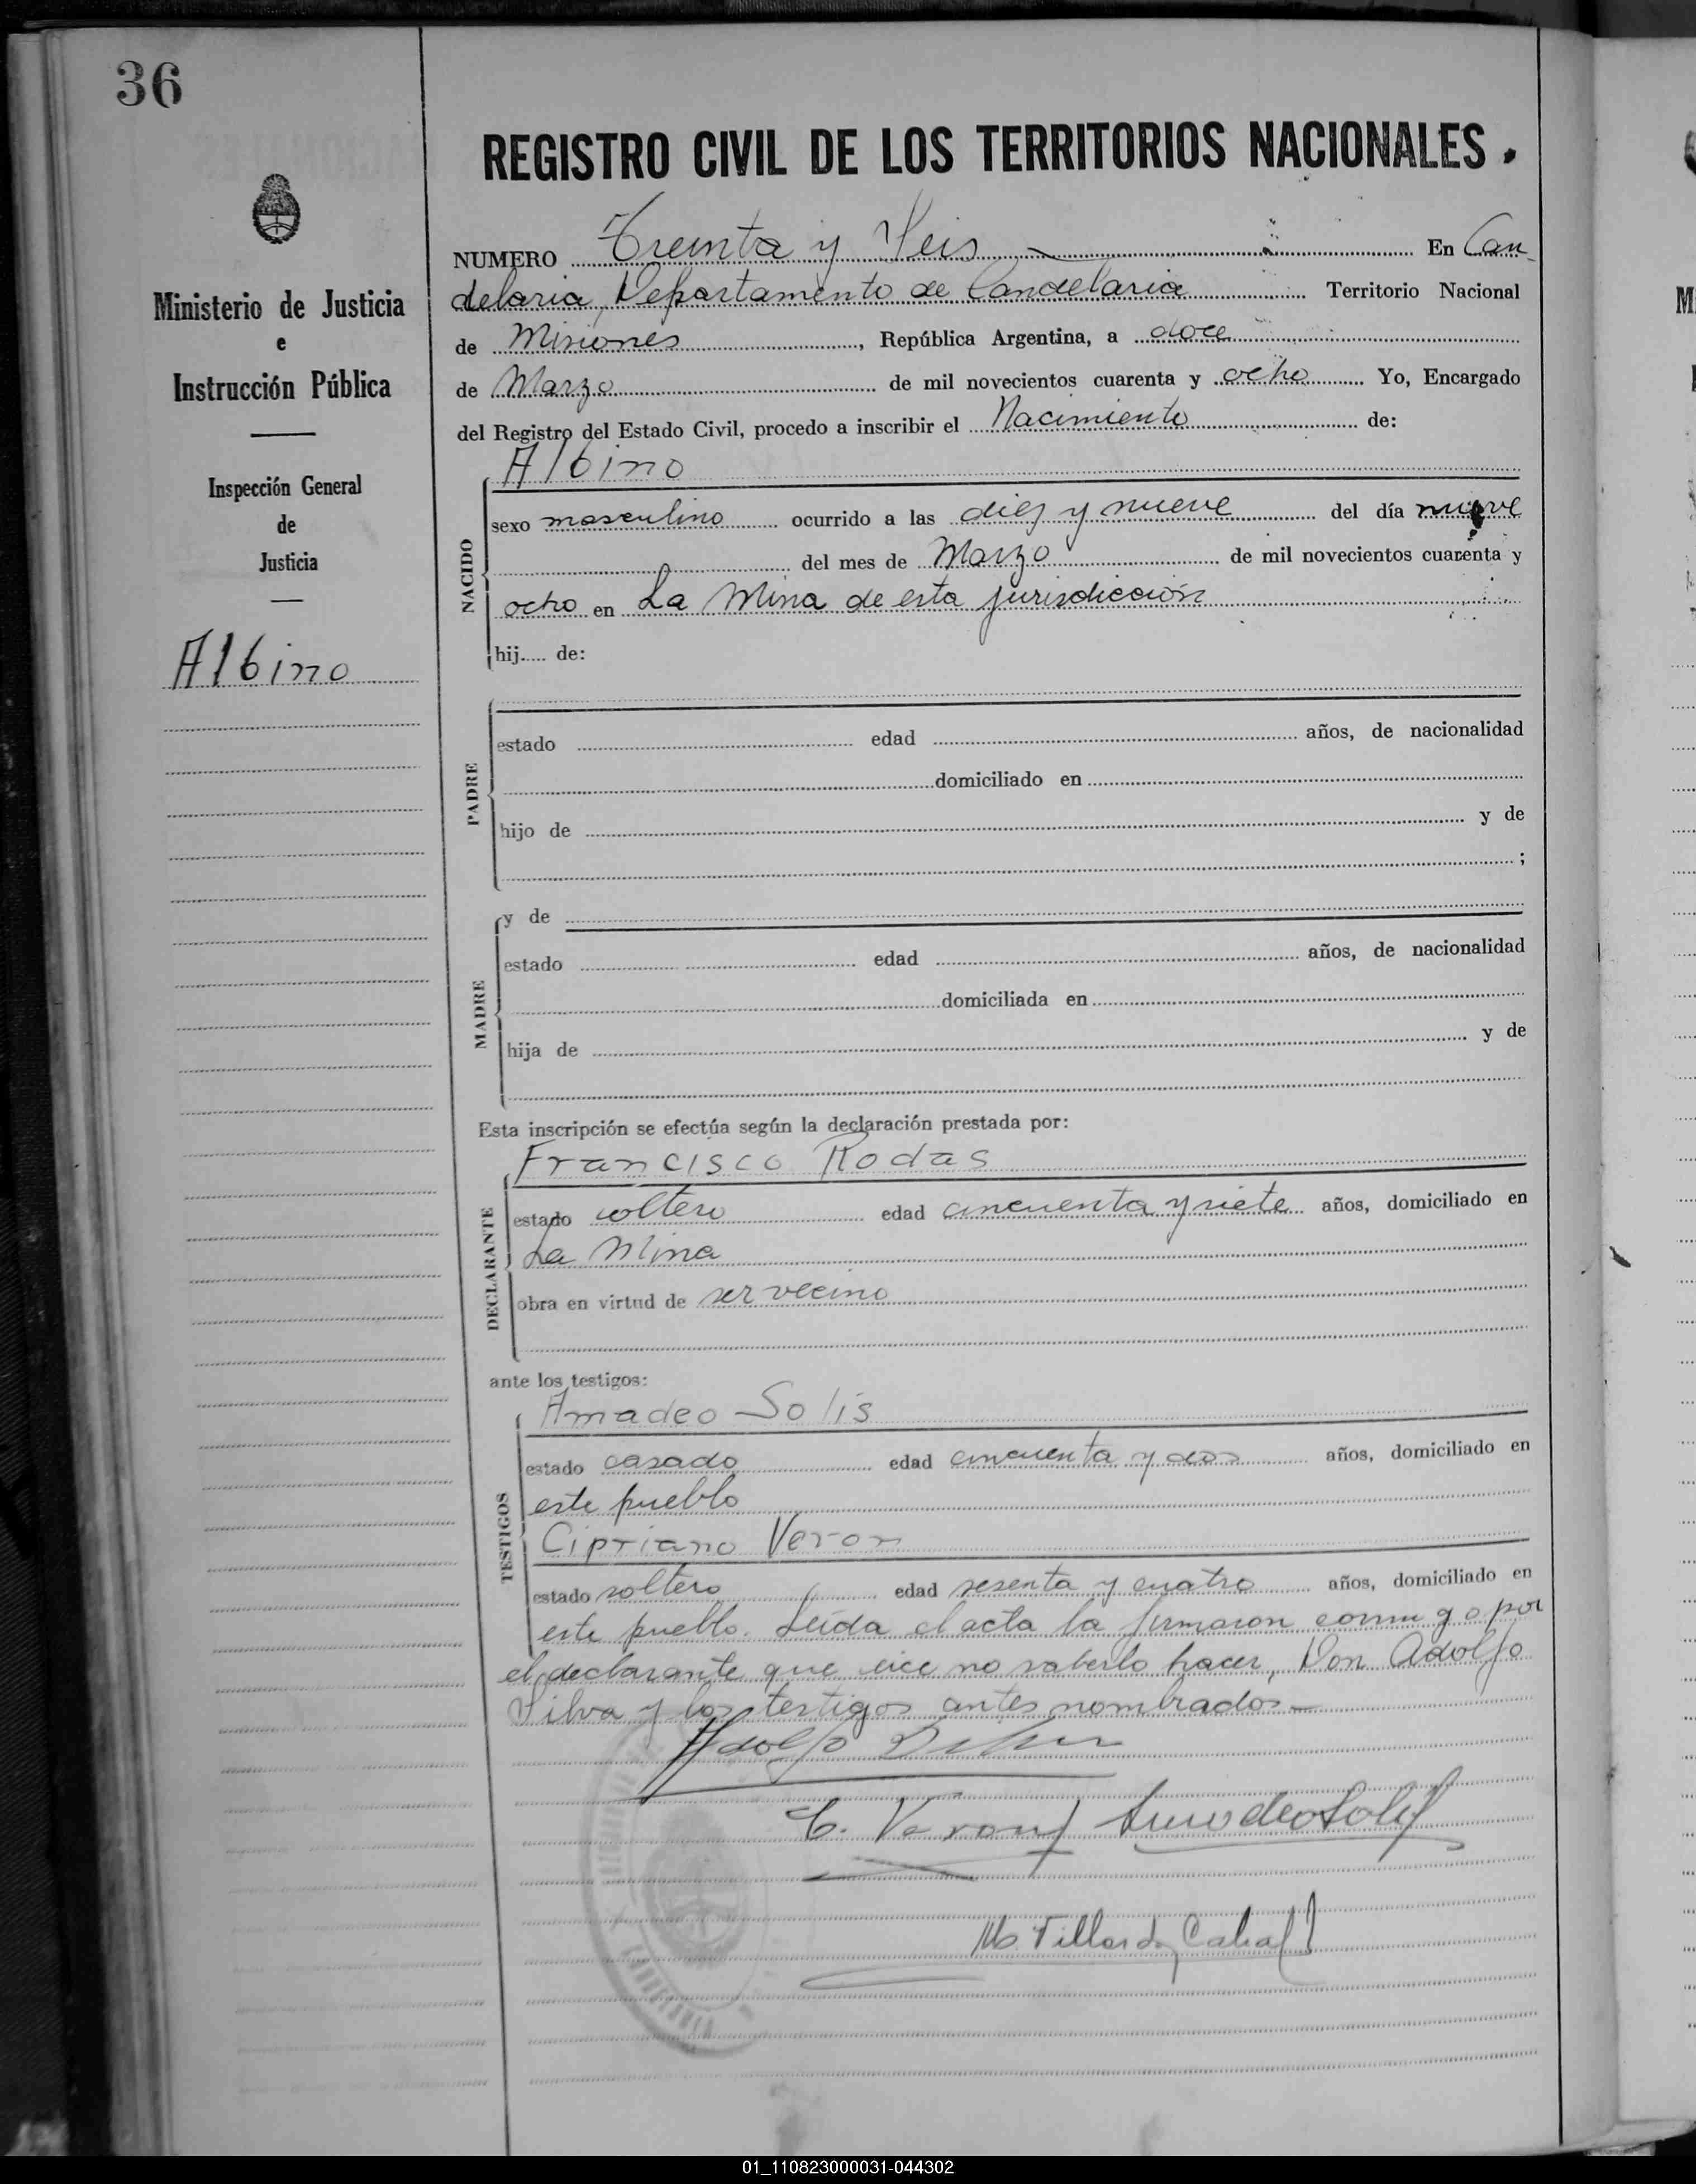 36
REGISTRO CIVIL DE LOS TERRITORIOS NACIONALES.
NUMERO Treinta y Seis En Can-
delaria, Departamento de Candelaria Territorio Nacional
de Misiones, República Argentina, a doce
de Marzo de mil novecientos cuarenta y ocho Yo, Encargado
del Registro del Estado Civil, procedo a inscribir el Nacimiento de:
Ministerio de Justicia
e
Instrucción Pública
Inspección General
de
Justicia
Albino
NACIDO
Albino
sexo masculino ocurrido a las diez y nueve del día nueve
del mes de Marzo de mil novecientos cuarenta y
ocho en La Mina de esta jurisdicción
hij..... de:
PADRE
estado edad años, de nacionalidad
domiciliado en
hijo de y de
;
MADRE
y de
estado edad años, de nacionalidad
domiciliada en
hija de y de
Esta inscripción se efectúa según la declaración prestada por:
DECLARANTE
Francisco Rodas
estado soltero edad cincuenta y siete años, domiciliado en
La Mina
obra en virtud de ser vecino
ante los testigos:
TESTIGOS
Amadeo Solis
estado casado edad cincuenta y dos años, domiciliado en
este pueblo
Cipriano Veron
estado soltero edad sesenta y cuatro años, domiciliado en
este pueblo. Leída el acta la firmaron conmigo por
el declarante que dice no saberlo hacer, Don Adolfo
Silva y los testigos antes nombrados.-
Adolfo Silva
C. Veron Amadeo Solis
Cabral
01_110823000031-044302